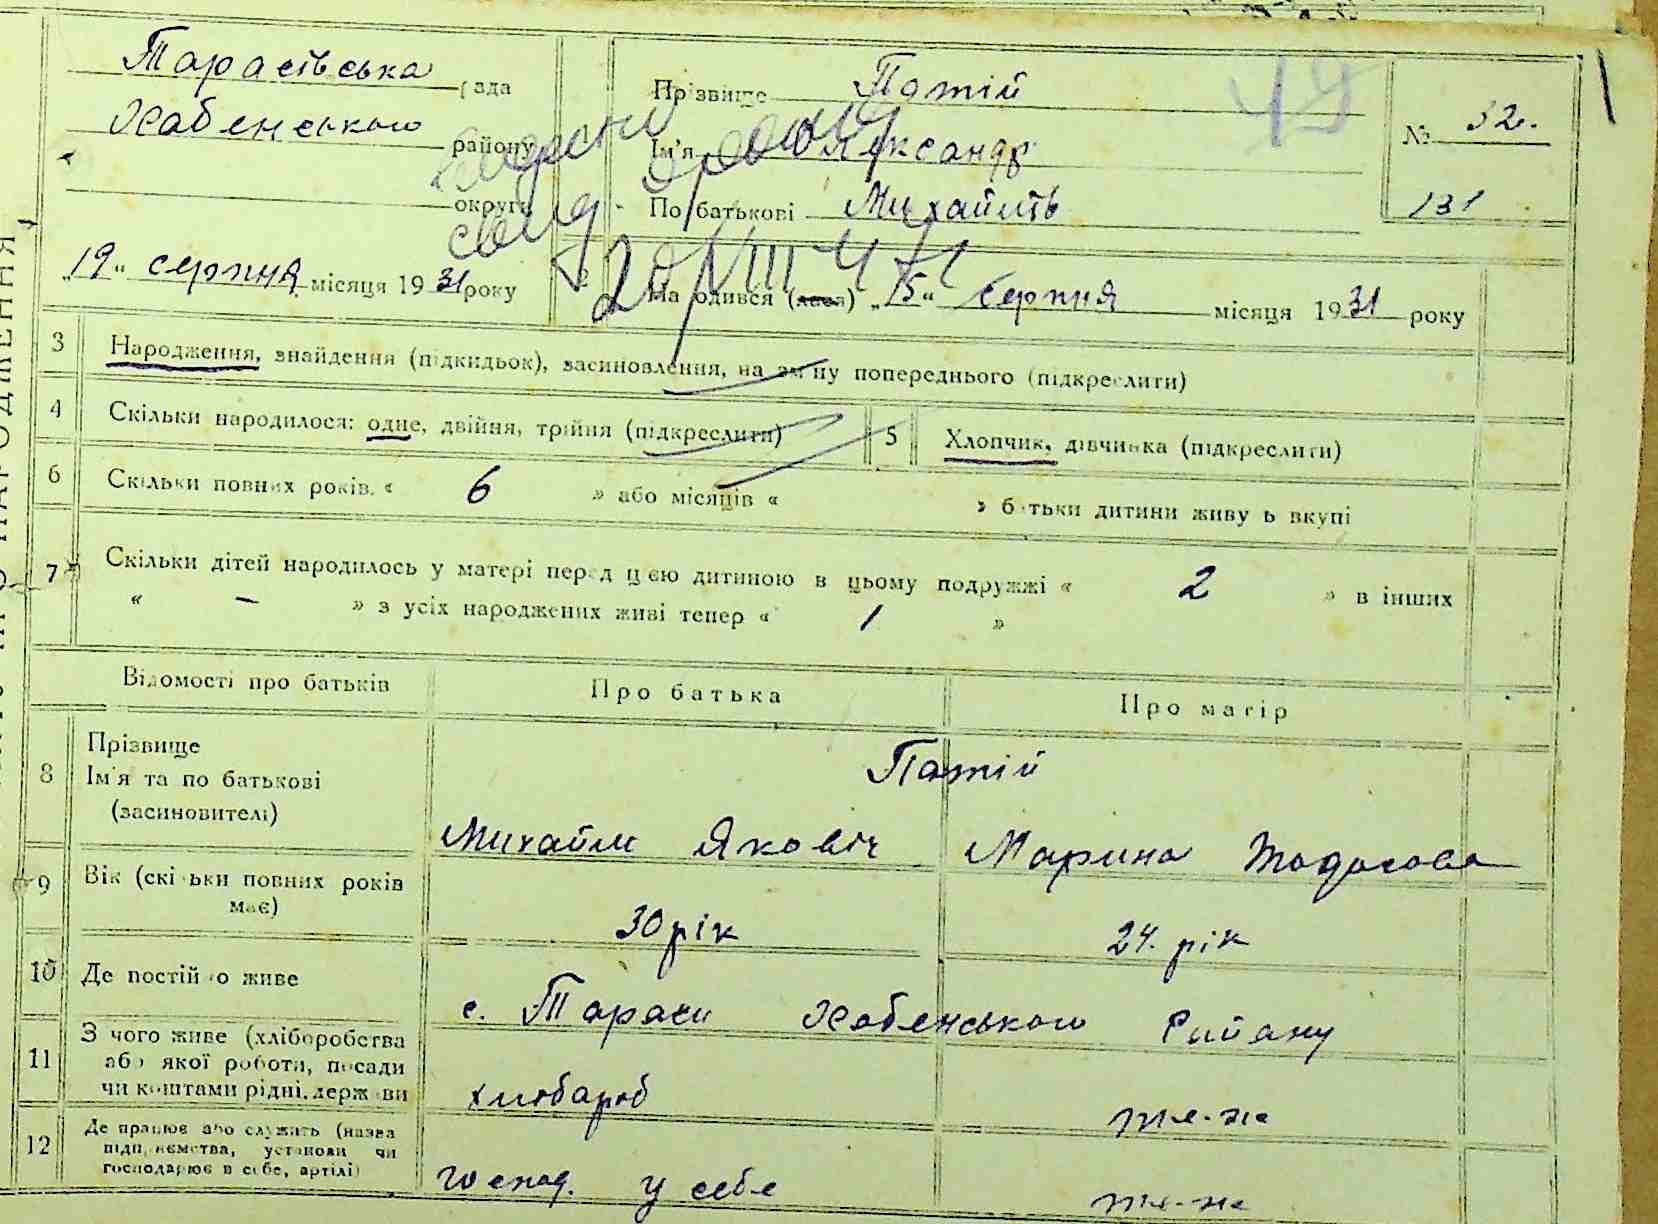 Тарасівська рада
Хабенського району
округи
„19“ серпня місяця 1931 року
Прізвище Потій
Ім'я Олександр
По батькові Михайлів
№ 32.
131
49
На одився (лася) „15“ серпня місяця 1931 року
20/VIII 47
3 Народження, знайдення (підкидьок), засиновлення, на зміну попереднього (підкреслити)
4 Скільки народилося: одне, двійня, трійня (підкреслити)
5 Хлопчик, дівчинка (підкреслити)
6 Скільки повних років « 6 » або місяців « » батьки дитини живуть вкупі
7 Скільки дітей народилось у матері перед цією дитиною в цьому подружжі « 2 » в інших
« – » з усіх народжених живі тепер « 1 »
Відомості про батьків Про батька Про матір
8 Прізвище
Ім'я та по батькові
(засиновителі)
Потій
Михайло Якович Марина
9 Вік (скільки повних років
має)
30 рік 24. рік
10 Де постійно живе
с. Тараси Хабенського району
11 З чого живе (хліборобства
або якої роботи, посади
чи коштами рідні, держави
хлібароб те-же
12 Де працює або служить (назва
підприємства, установи чи
господарює в себе, артілі)
господ. у себе те-же